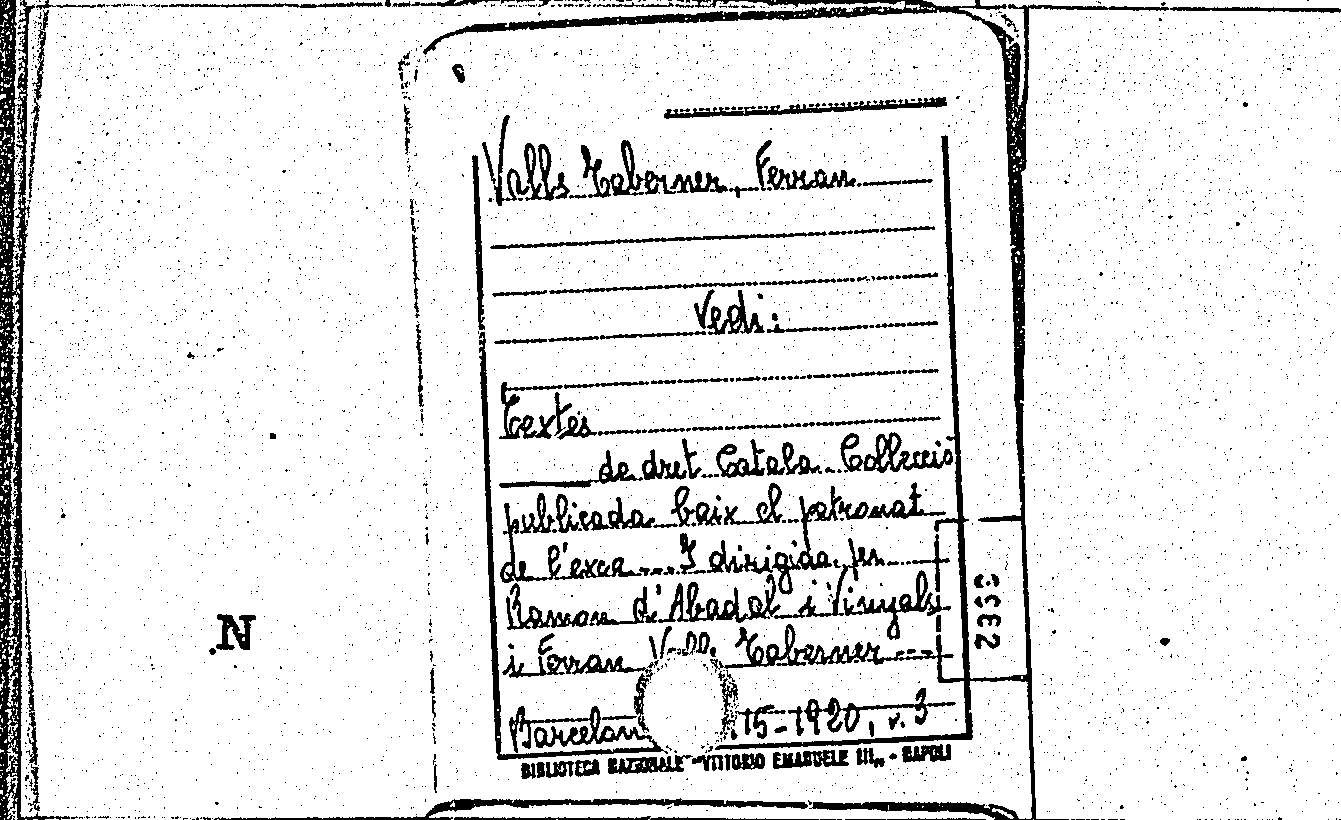 Valls Taberner, Ferran
Vedi:
Textes
de dret Catala. Collecció
publicada baix el patronat
de l'exca --- I dirigida per
Ramon d'Abadal i Vinyals
i Ferran Valls Taberner ---
Barcelon 15-1920, v. 3
BIBLIOTECA NAZIONALE "VITTORIO EMANUELE III„ - NAPOLI
N